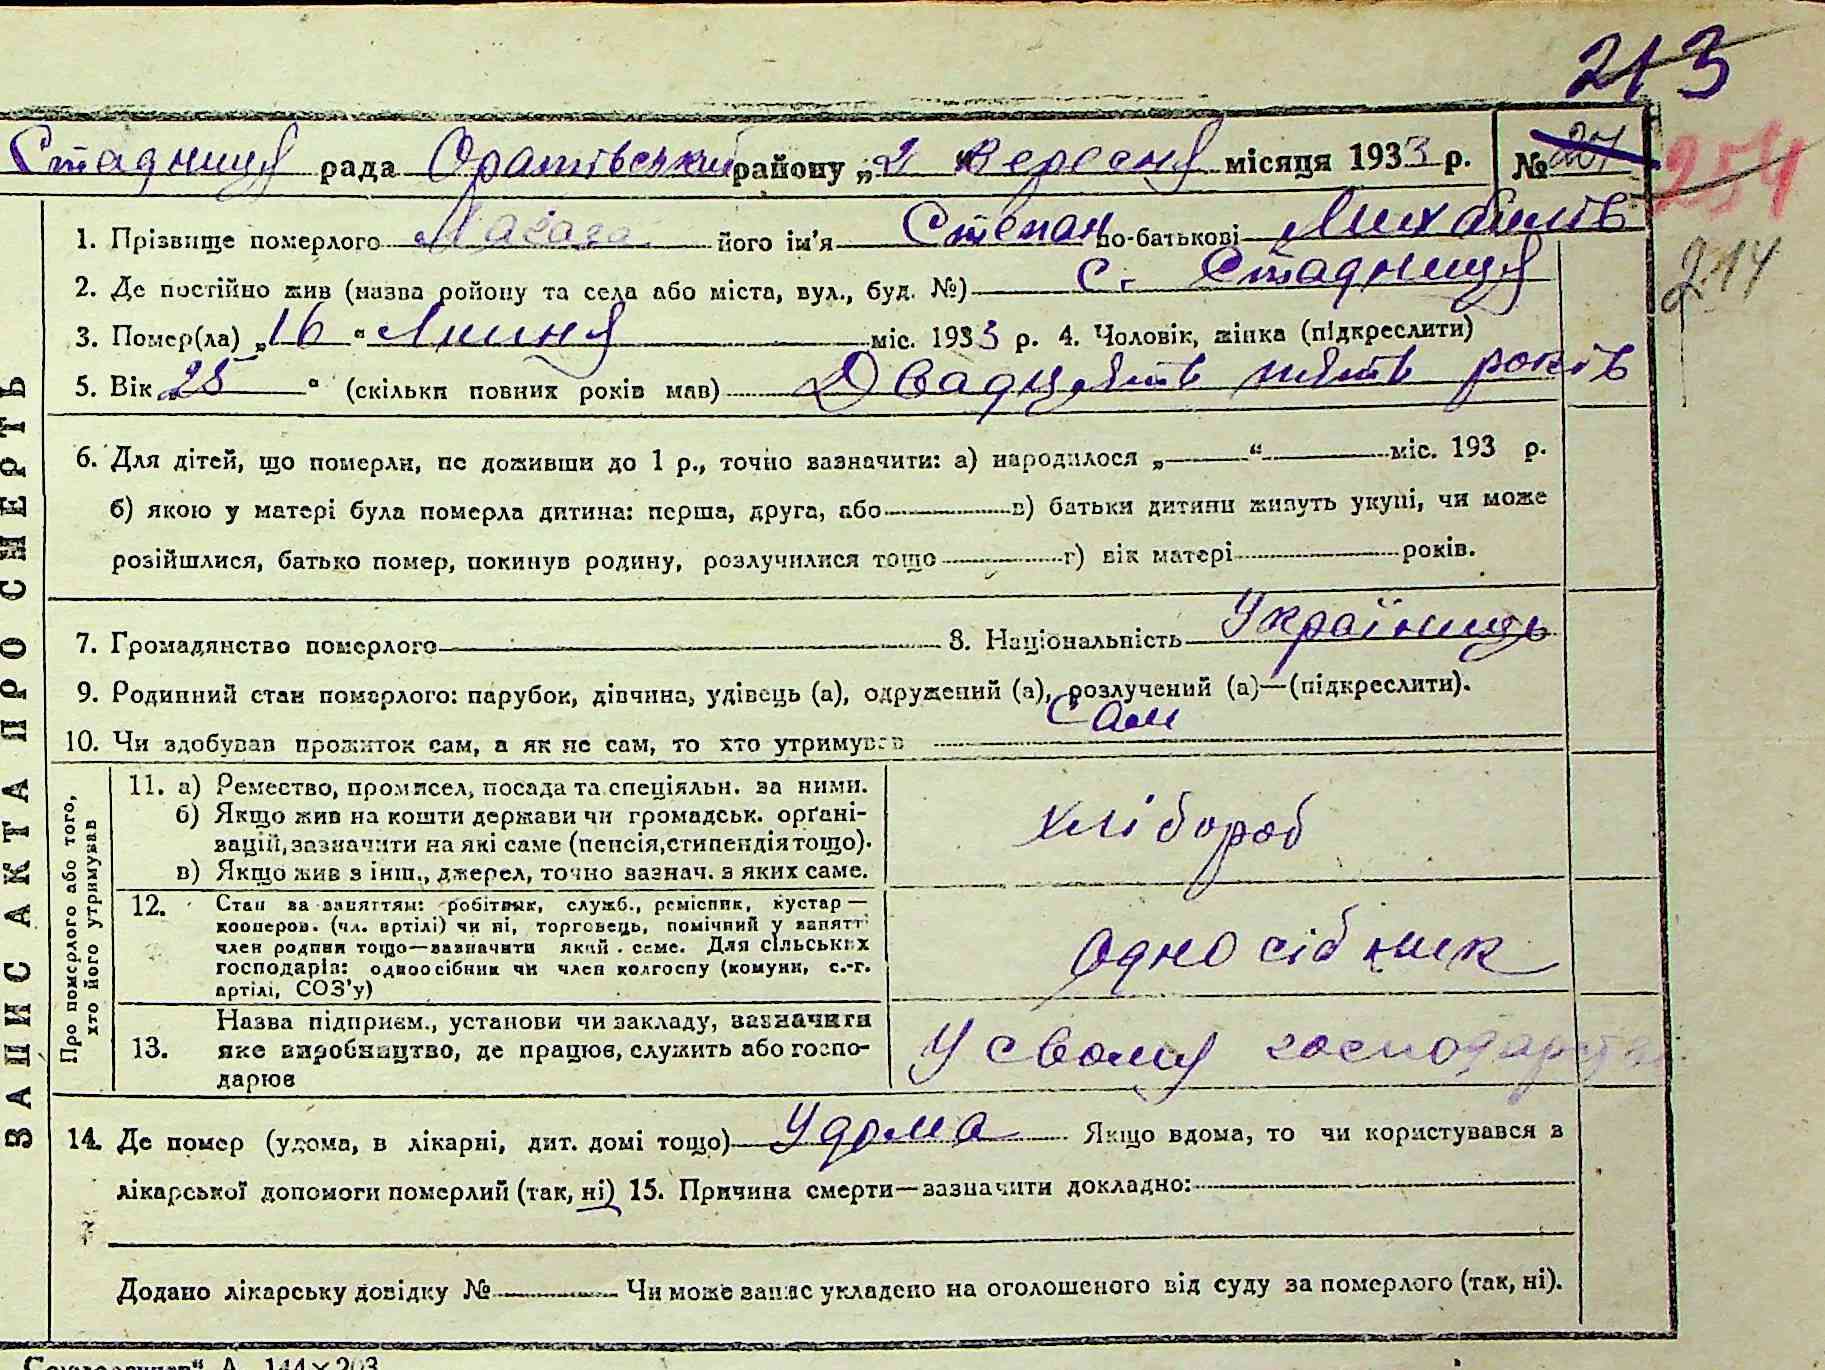 213
Стадниця рада Оратівський району „2" Вересня місяця 1933 р. № 201
254
1. Прізвище померлого його ім'я Степан по-батькові Михайлів
214
2. Де постійно жив (назва ройону та села або міста, вул., буд. №) с. Стадниця
3. Помер(ла) „16" Липня міс. 1933 р. 4. Чоловік, жінка (підкреслити)
5. Вік „25" (скільки повних років мав) Двадцять пять років
6. Для дітей, що померли, не доживши до 1 р., точно зазначити: а) народилося „ " міс. 193 р.
б) якою у матері була померла дитина: перша, друга, або в) батьки дитини живуть укупі, чи може
розійшлися, батько помер, покинув родину, розлучилися тощо г) вік матері років.
7. Громадянство померлого 8. Національність Україниць
9. Родинний стан померлого: парубок, дівчина, удівець (а), одружений (а), розлучений (а)—(підкреслити).
10. Чи здобував прожиток сам, а як не сам, то хто утримував Сам
ЗАПИС АКТА ПРО СМЕРТЬ
Про померлого або того, хто його утримував
11. а) Ремество, промисел, посада та спеціяльн. за ними.
б) Якщо жив на кошти держави чи громадськ. орґані-
зацій, зазначити на які саме (пенсія, стипендія тощо).
в) Якщо жив з інш., джерел, точно зазнач. з яких саме.
хлібороб
12. Стан за заняттям: робітник, служб., ремісник, кустар—
кооперов. (чл. артілі) чи ні, торговець, помічний у занятті
член родини тощо—зазначити який саме. Для сільських
господарів: одноосібник чи член колгоспу (комуни, с.-г.
артілі, СОЗ'у)
односібник
13. Назва підприєм., установи чи закладу, зазначити
яке виробництво, де працює, служить або госпо-
дарює
У свому господарстві
14. Де помер (удома, в лікарні, дит. домі тощо) Удома Якщо вдома, то чи користувався з
лікарської допомоги померлий (так, ні) 15. Причина смерти—зазначити докладно:
Додано лікарську довідку № Чи може запис укладено на оголошеного від суду за померлого (так, ні).
А 144×203